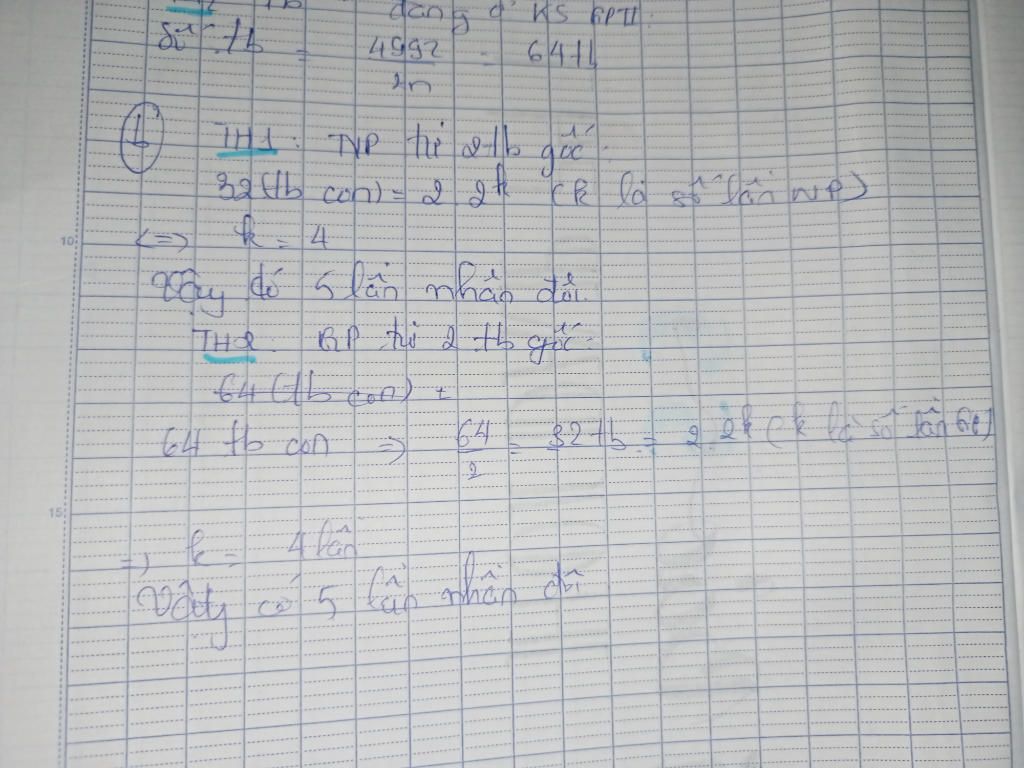 dạng ở KS GPII.
Số tb = 4992 / 2n = 64 tb
L
TH1: NP từ 2 tb gốc.
32 (tb con) = 2 2^k (k là số lần NP)
<=> k = 4
Vậy đó 5 lần nhân đôi.
TH2. GP từ 2 tb gốc.
64 (tb con) =
64 tb con => 64/2 = 32 tb = 2. 2^k (k là số lần GP)
=> k = 4 lần
Vậy có 5 lần nhân đôi
10
15